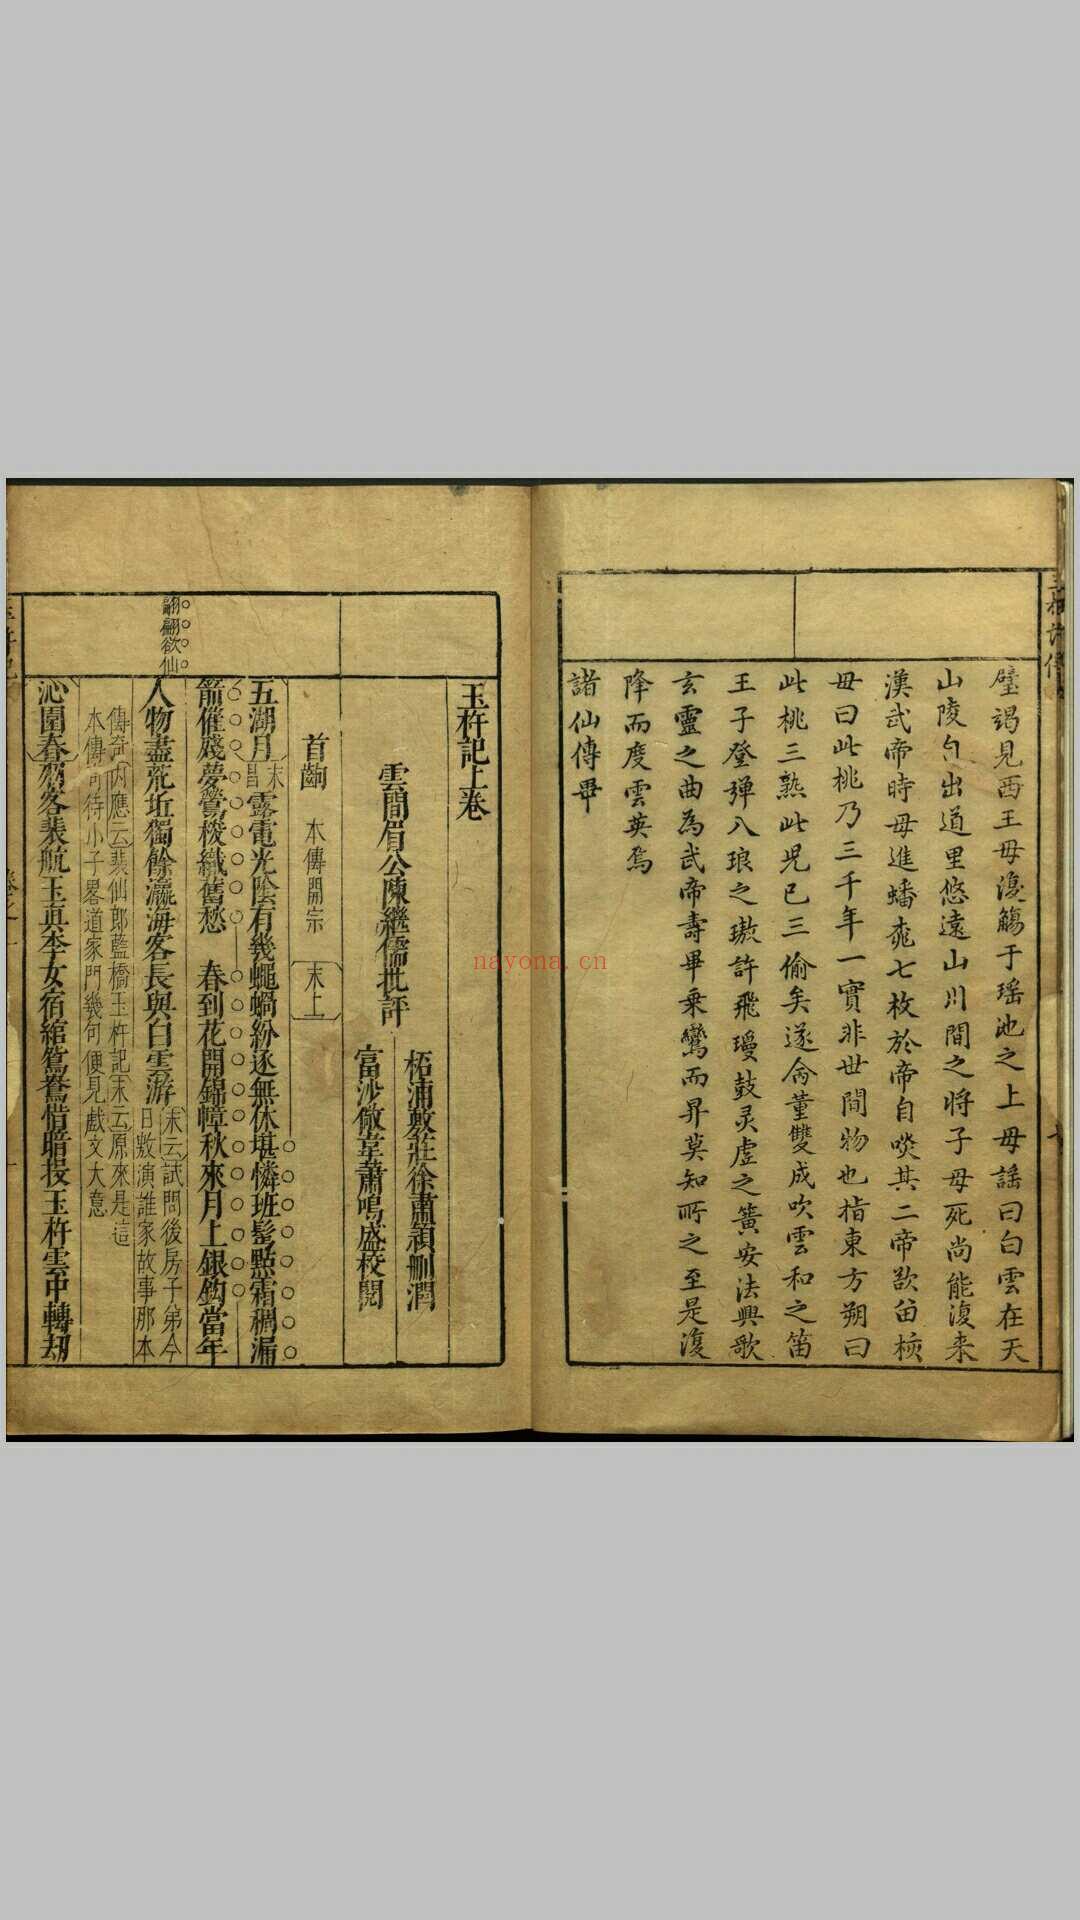 璧謁見西王母復觴于瑶池之上母謡曰白雲在天
山陵自出道里悠遠山川間之将子毋死尚能復来
漢武帝時母進蟠桃七枚於帝自啖其二帝欲留核
母曰此桃乃三千年一實非世間物也指東方朔曰
此桃三熟此児已三偷矣遂命董雙成吹雲和之笛
王子登弹八琅之璈許飛瓊鼓灵虚之簧安法興歌
玄靈之曲為武帝壽畢乗鸞而昇莫知所之至是復
降而度雲英焉
諸仙傳畢
玉杵記上卷
雲間眉公陳繼儒批評
柘浦敷莊徐肅穎刪潤
富沙儆韋蕭鳴盛校閱
首齣 本傳開宗 末上
五湖月 末昌 露電光陰有幾蠅蝸紛逐無休堪憐班髩點霜稠漏
箭催殘夢鶯梭織舊愁 春到花開錦幛秋來月上銀鈎當年
翩翩欲仙
人物盡荒坵獨餘瀛海客長與白雲游 末云 試問後房子弟今
日敷演誰家故事那本
傳奇 内應云 裴仙郎藍橋玉杵記 末云 原來是這
本傳奇待小子畧道家門幾句便見戲文大意
沁園春 客裴航玉真李女宿綰鴛鴦惜暗投玉杵雲中轉刼
nayona.cn